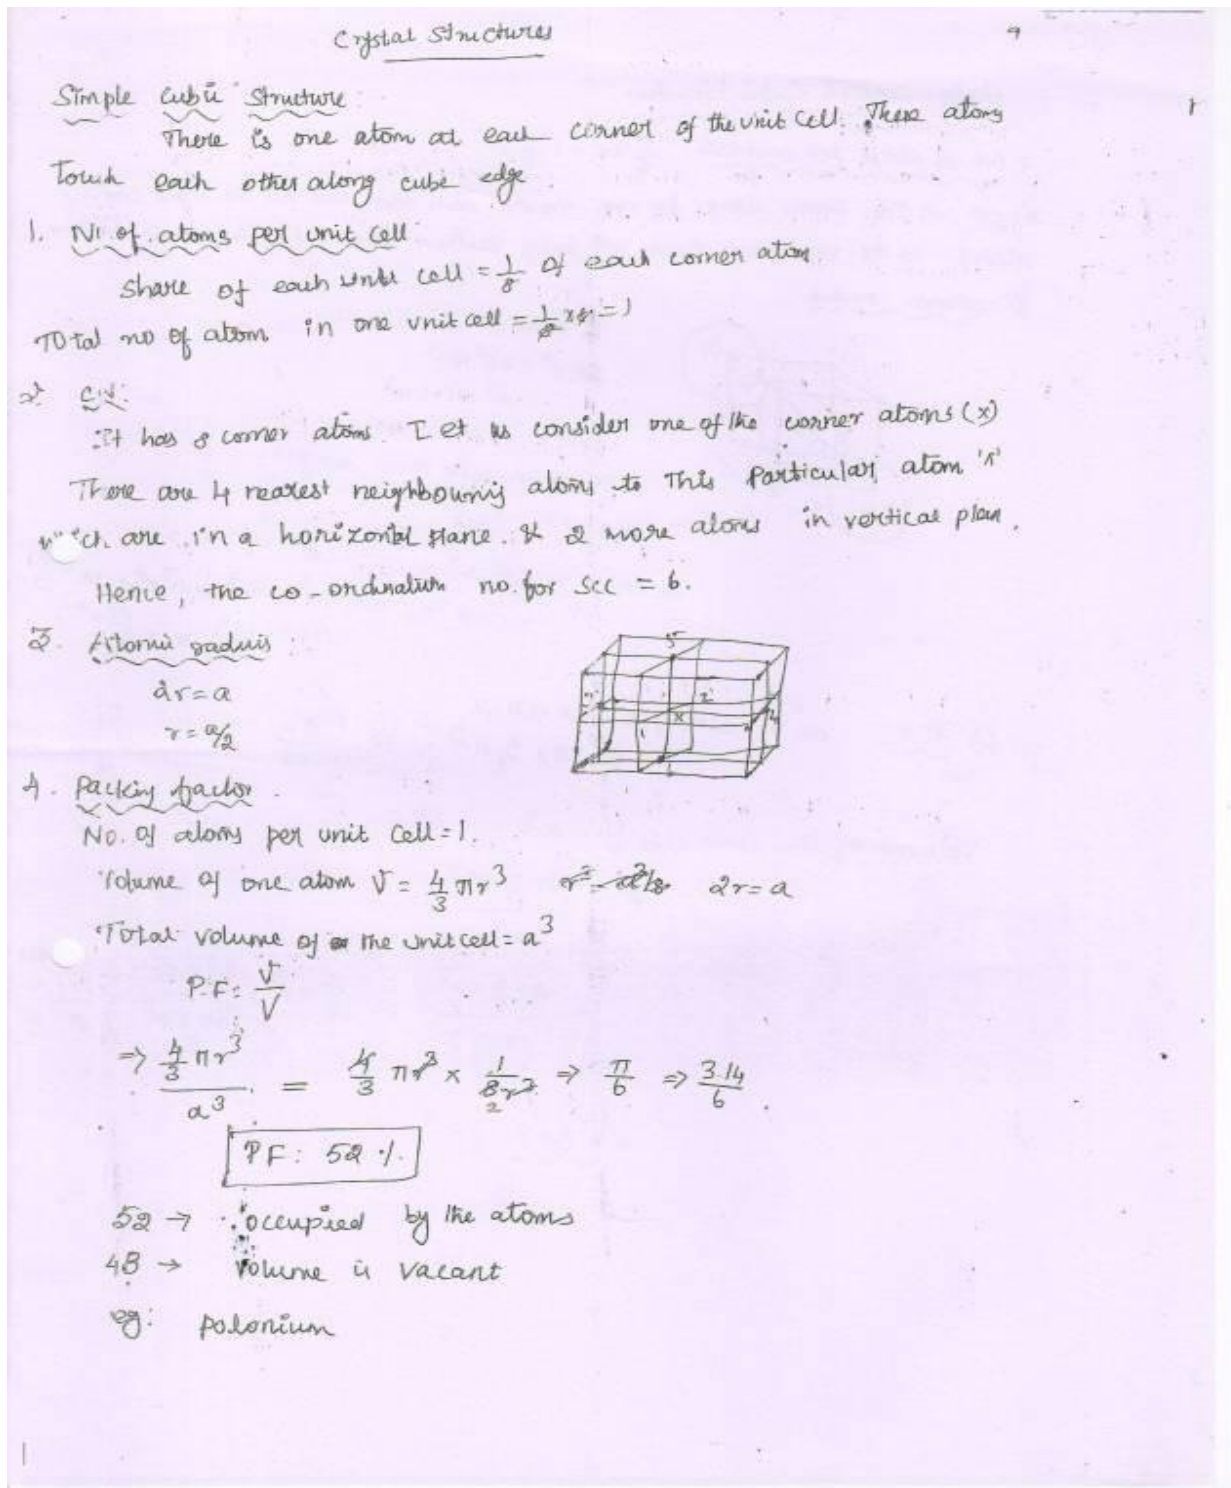 Crystal Structures
Simple Cubic Structure:
There is one atom at each corner of the unit cell. These atoms
Touch each other along cube edge.
1. No of atoms per unit cell
Share of each unit cell = 1/8 of each corner atom
Total no of atom in one unit cell = 1/8 × 8 = 1
2. C.N:
It has 8 corner atoms. Let us consider one of the corner atoms (x)
There are 4 nearest neighbouring atoms to This Particular atom 'x'
which are in a horizontal plane. & 2 more atoms in vertical plan.
Hence, the co-ordination no. for scc = 6.
3. Atomic radius:
2r = a
r = a/2
5
2
x
1
4. Packing factor
No. of atoms per unit cell = 1.
Volume of one atom v = 4/3 πr³ 2r = a
Total volume of the unit cell = a³
P.F: v/V
⇒ 4/3 πr³ / a³ = 4/3 πr³ × 1/8r³ ⇒ π/6 ⇒ 3.14/6
PF: 52 %.
52 → occupied by the atoms
48 → Volume is vacant
eg: Polonium